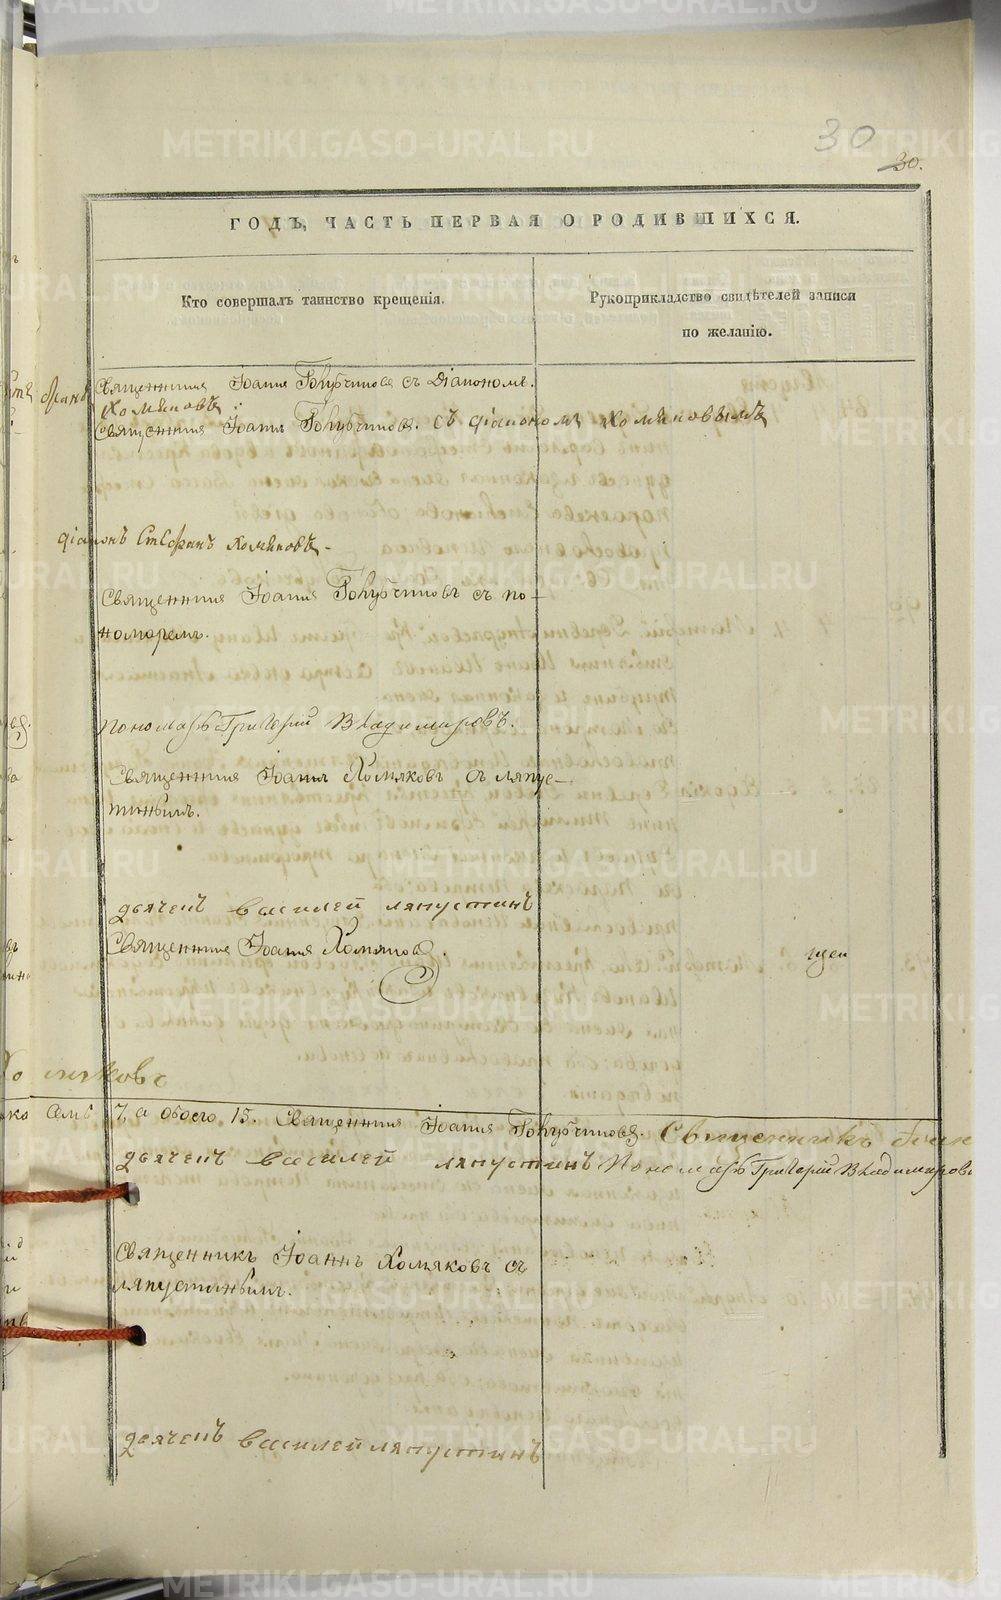 METRIKI.GASO-URAL.RU
30
30.
ГОДЪ, ЧАСТЬ ПЕРВАЯ О РОДИВШИХСЯ.
Кто совершалъ таинство крещенія.
Рукоприкладство свидѣтелей записи
по желанію.
Священникъ Іоаннъ Голубчиковъ съ Діакономъ.
Хомяковъ
Священникъ Іоаннъ Голубчиковъ. съ діакономъ Хомяковымъ
діаконъ Стефанъ Хомяковъ
Священникъ Іоаннъ Голубчиковъ съ по-
номаремъ.
пономарь Григорий Владимировъ.
Священникъ Іоаннъ Хомяковъ съ ляпус-
тинымъ.
дьячекъ василей ляпустинъ
Священникъ Іоаннъ Хомяковъ.
Хомяковъ
7, а обоего 15. Священникъ Іоаннъ Голубчиковъ. Священникъ Іоан
дьячекъ василей ляпустинъ Пономарь Григорий Владимировъ
Священникъ Іоаннъ Хомяковъ съ
ляпустинымъ.
дьячекъ василей ляпустинъ